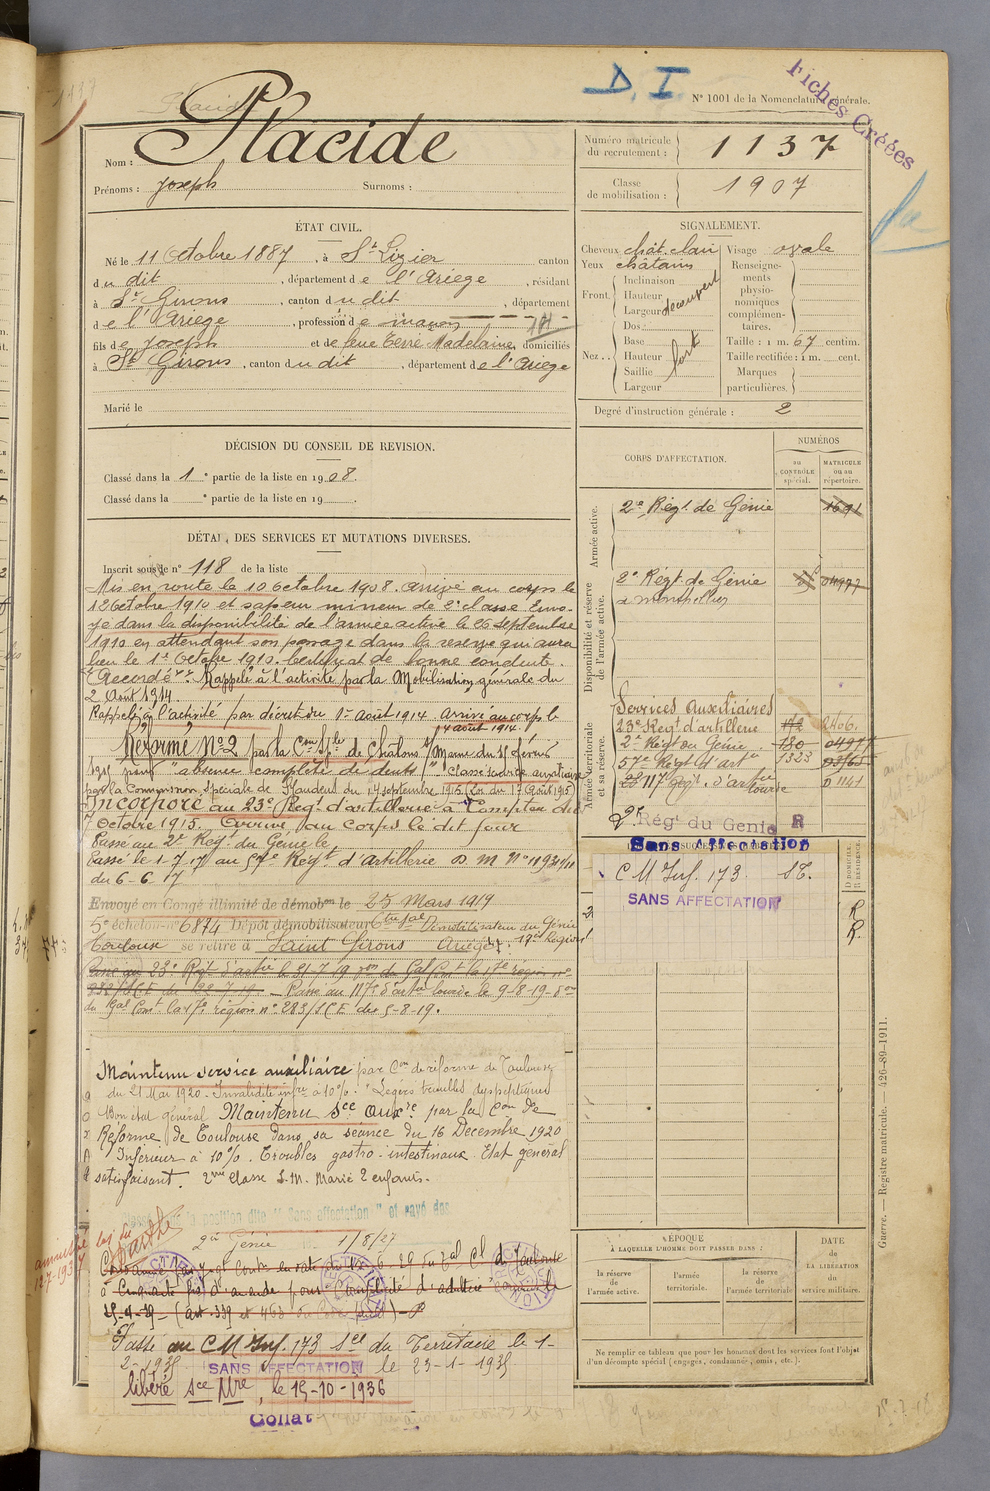 D. I.
N° 1001 de la Nomenclature générale.
Fiches Créées
Nom : Placide
Prénoms : Joseph Surnoms :
Numéro matricule du recrutement : 1137
Classe de mobilisation : 1907
ÉTAT CIVIL.
Né le 11 Octobre 1887, à St Lizier canton
du dit, département de l'Ariège, résidant
à St Girons, canton du dit, département
de l'Ariège, profession de maçon
fils de Joseph et de feue Terré Madelaine, domiciliés
à St Girons, canton du dit, département de l'Ariège
Marié le
SIGNALEMENT.
Cheveux chât. clair
Yeux châtains
Front. Inclinaison
Hauteur
Largeur
découvert
Nez.. Dos
Base
Hauteur
Saillie
Largeur
fort
Visage ovale
Renseignements physionomiques complémentaires.
Taille : 1 m. 67 centim.
Taille rectifiée : 1 m. cent.
Marques particulières.
Degré d'instruction générale : 2
DÉCISION DU CONSEIL DE REVISION.
Classé dans la 1e partie de la liste en 1908.
Classé dans la e partie de la liste en 19
DÉTAIL DES SERVICES ET MUTATIONS DIVERSES.
Inscrit sous le n° 118 de la liste
Mis en route le 10 octobre 1908. Arrivé au corps le
12 Octobre 1910 et sapeur mineur de 2e classe. Envo-
yé dans la disponibilité de l'armée active le 26 septembre
1910 en attendant son passage dans la réserve qui aura
lieu le 1er Octobre 1910. Certificat de bonne conduite.
"Accordé". Rappelé à l'activité par la Mobilisation générale du
2 Août 1914
Rappelé à l'activité par décret du 1er août 1914 arrivé au corps le
4 août 1914.
Réformé N°2 par la Con Sple de Châlons s/ Marne du 15 février
1915 pour "absence complète de dents". Classé service auxiliaire
par la Commission Spéciale de St Gaudens du 14 septembre 1915 (Loi du 17 Août 1915)
Incorporé au 23e Régt d'artillerie à compter du
7 Octobre 1915. Arrivé au corps le dit jour
Passé au 2e Régt du Génie le
Passé le 1-7-17 au 57e Régt d'Artillerie D. M N° 11931/11
du 6-6-17
Envoyé en Congé illimité de démobon le 25 Mars 1919
5e échelon n° 6874 Dépôt démobilisateur Démobilisateur du Génie
Toulouse se retire à Saint Girons Ariège. 17e Région
Passé au 23e Régt d'artie le 21-7-19
232/1CE du 22-7-19. Passé au 117e d'artie lourde le 9-8-19
du Gal Comt la 17e région n° 283/1CE du 5-8-19.
Maintenu service auxiliaire par Con de réforme de Toulouse
du 21 Mai 1920. Invalidité infre à 10%. "Légers troubles dyspeptiques
Bon état général Maintenu sce auxre par la Con de
Réforme de Toulouse dans sa séance du 16 Decembre 1920
Inférieur à 10%. Troubles gastro-intestinaux. Etat général
satisfaisant. 2me classe S.M. Marié 2 enfants.
Classé dans la position dite "Sans affectation" et rayé des
2e Génie 1/8/27
à Cinquante frs d'amende pour Complicité d'adultère
(art. 339 et 463 du Code pénal)
Passé au C M Inf. 173 Sel du Territoire le 1-
2-1935 SANS AFFECTATION le 23-1-1935
libéré sce Mre, le 15-10-1936
Collat
CORPS D'AFFECTATION.
NUMÉROS
au CONTRÔLE spécial.
MATRICULE ou au répertoire.
Armée active.
2e Régt de Génie 1691
Disponibilité et réserve de l'armée active.
2e Régt. de Génie 04977
à Montpellier
Armée territoriale et sa réserve.
Services Auxiliaires
23e Régt d'artillerie 172 2406.
2e Régt du Génie 180 04977
57e Régt d'artie 1323
117e Régt. d'artie lourde 01141
2e Régt du Génie R
Sans Affectation
C M Inf. 173 SE.
SANS AFFECTATION
R
R.
ÉPOQUE
À LAQUELLE L'HOMME DOIT PASSER DANS :
la réserve de l'armée active.
l'armée territoriale.
la réserve de l'armée territoriale
DATE de LA LIBÉRATION du service militaire.
Ne remplir ce tableau que pour les hommes dont les services font l'objet
d'un décompte spécial (engagés, condamnés, omis, etc.).
Guerre. — Registre matricule. — 426-89-1911.